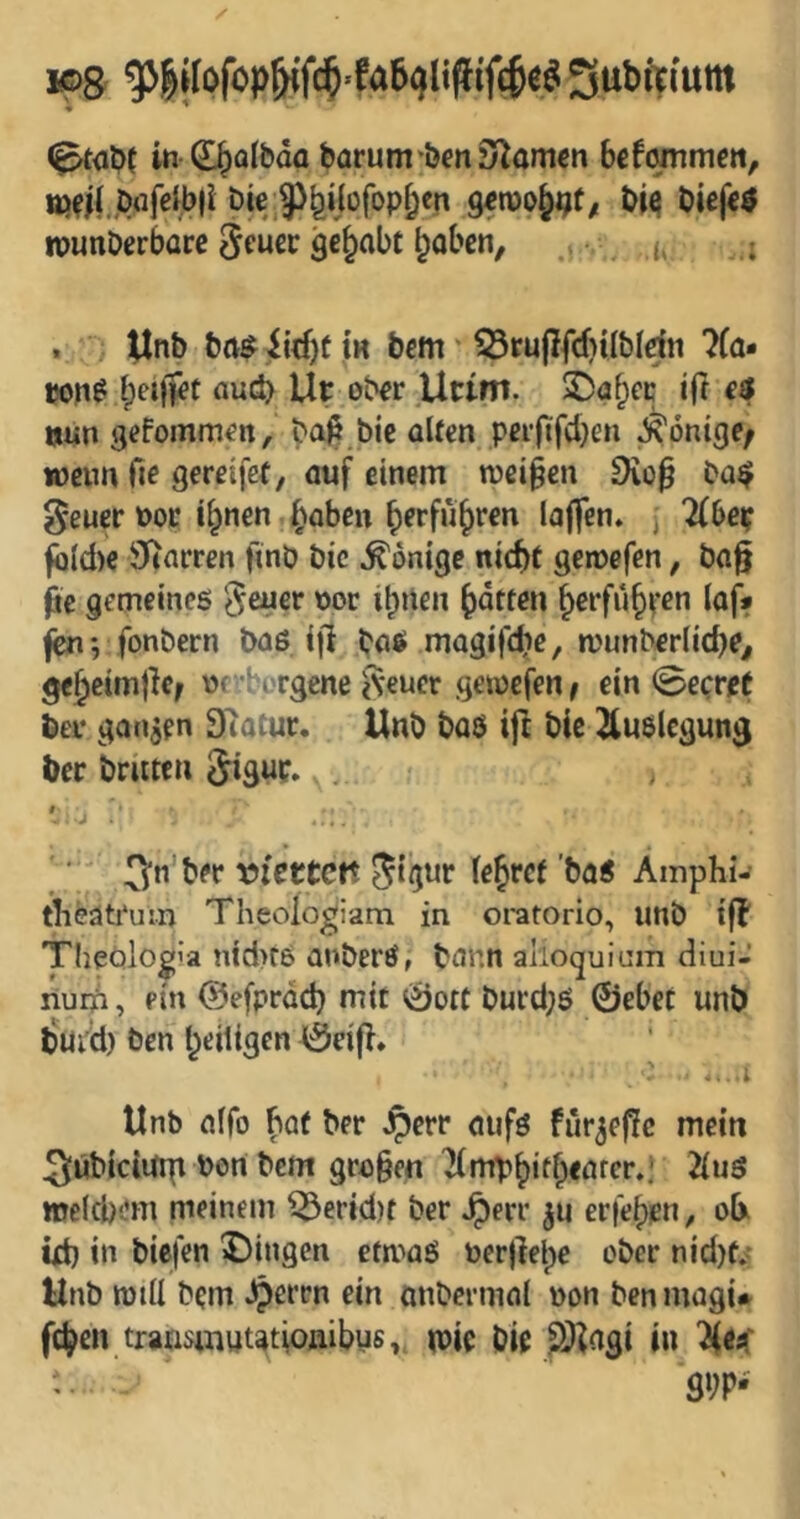 108 Philosophisch-kabalistisches Judicium
Stadt in Chaldäa darum den Namen bekommen,
weil daselbst die Philosophen gewohnt, die dieses
wunderbare Feuer gehabt haben,
Und das Licht in dem Brustschildlein Aa-
rons heisset auch Ur oder Urim. Daher ist es
nun gekommen, daß die alten persischen Könige,
wenn sie gereiset, auf einem weißen Roß das
Feuer vor ihnen haben herführen lassen. Aber
solche Narren sind die Könige nicht gewesen, daß
sie gemeines Feuer vor ihnen hätten herführen las-
sen; sondern das ist das magische, wunderliche,
geheimste, verborgene Feuer gewesen, ein Secret
der ganzen Natur. Und das ist die Auslegung
der dritten Figur.
In der vierten Figur lehret das Amphi-
theatrum Theologiam in oratorio, und ist
Theologia nichts anders, dann alloquium diui-
num, ein Gespräch mit Gott durchs Gebet und
durch den heiligen Geist.
Und also hat der Herr aufs fürzeste mein
Judicium von dem großen Amphitheater. Aus
welchem meinem Bericht der Herr zu ersehen, ob
ich in diesen Dingen etwas verstehe oder nicht.
Und will dem Herrn ein andermal von den magi-
schen transmutationibus, wie die Magi in Ae-
gyp-